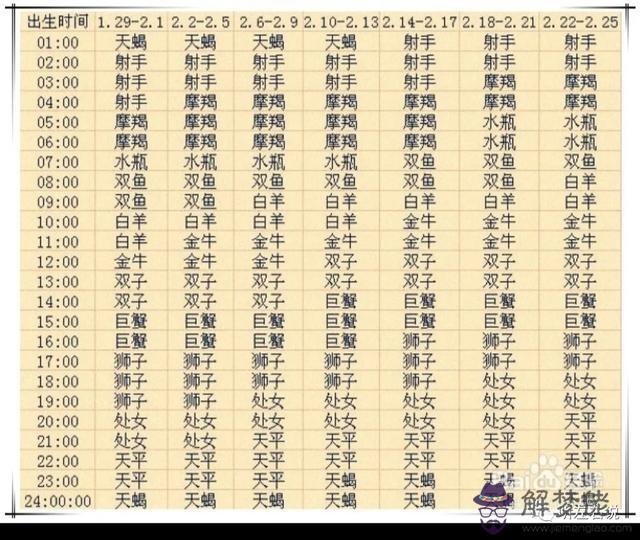 出生时间 1.29-2.1 2.2-2.5 2.6-2.9 2.10-2.13 2.14-2.17 2.18-2.21 2.22-2.25
01:00 天蝎 天蝎 天蝎 天蝎 射手 射手 射手
02:00 射手 射手 射手 射手 射手 射手 射手
03:00 射手 射手 射手 射手 射手 摩羯 摩羯
04:00 射手 摩羯 摩羯 摩羯 摩羯 摩羯 摩羯
05:00 摩羯 摩羯 摩羯 摩羯 摩羯 水瓶 水瓶
06:00 摩羯 摩羯 摩羯 摩羯 摩羯 水瓶 水瓶
07:00 水瓶 水瓶 水瓶 水瓶 双鱼 双鱼 双鱼
08:00 双鱼 双鱼 双鱼 双鱼 双鱼 双鱼 白羊
09:00 双鱼 双鱼 白羊 白羊 白羊 白羊 白羊
10:00 白羊 白羊 白羊 白羊 金牛 金牛 金牛
11:00 白羊 金牛 金牛 金牛 金牛 金牛 金牛
12:00 金牛 金牛 金牛 双子 双子 双子 双子
13:00 双子 双子 双子 双子 双子 双子 双子
14:00 双子 双子 双子 巨蟹 巨蟹 巨蟹 巨蟹
15:00 巨蟹 巨蟹 巨蟹 巨蟹 巨蟹 巨蟹 巨蟹
16:00 巨蟹 巨蟹 巨蟹 巨蟹 狮子 狮子 狮子
17:00 狮子 狮子 狮子 狮子 狮子 狮子 狮子
18:00 狮子 狮子 狮子 狮子 狮子 处女 处女
19:00 狮子 狮子 处女 处女 处女 处女 处女
20:00 处女 处女 处女 处女 处女 处女 天平
21:00 处女 处女 天平 天平 天平 天平 天平
22:00 天平 天平 天平 天平 天平 天平 天平
23:00 天平 天平 天平 天蝎 天蝎 天蝎 天蝎
24:00:00 天蝎 天蝎 天蝎 天蝎 天蝎
解梦佬
www.jiemenglao.com